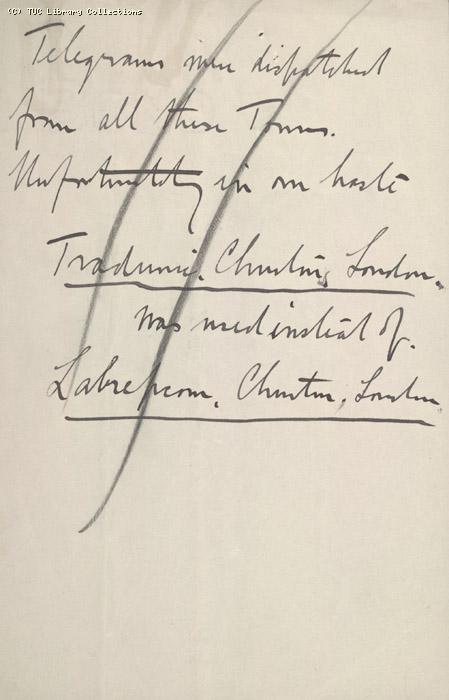 (C) TUC Library Collections
Telegrams were dispatched
from all these Towns.
Unfortunately in our haste
Tradunic, Churton, London.
was used instead of.
Labrepcom, Churton, London